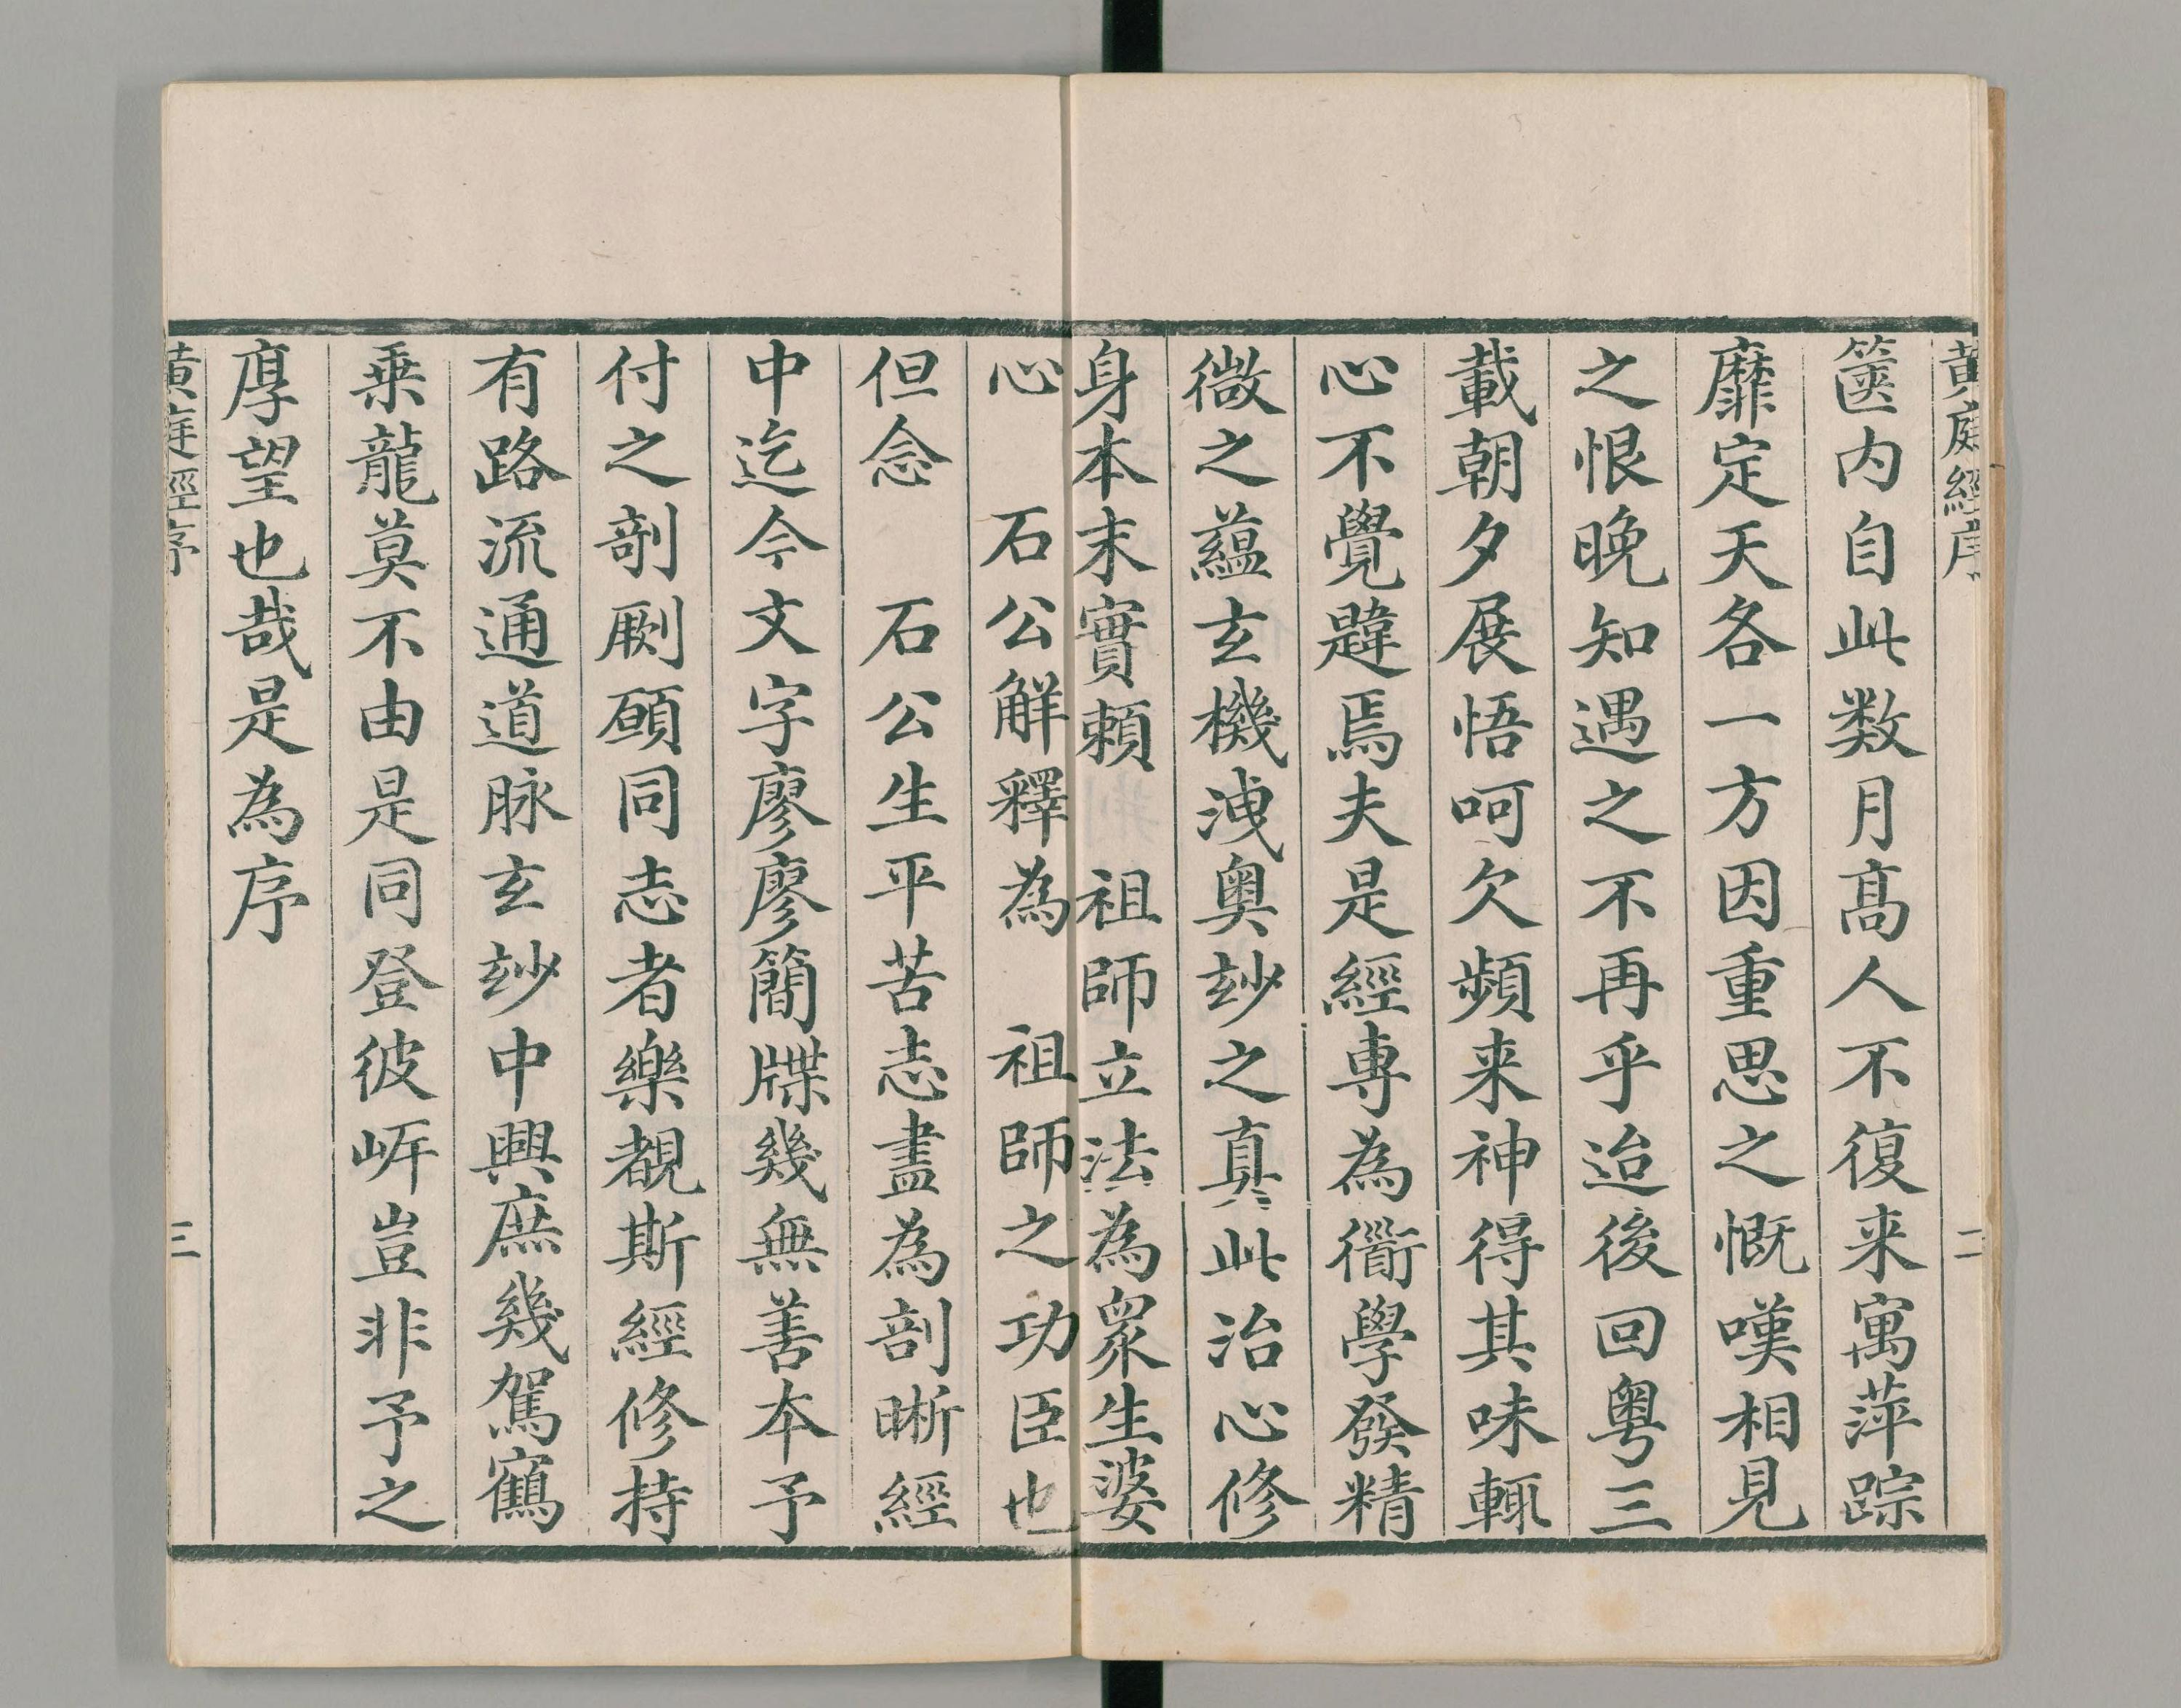 黃庭經序
二
篋内自此数月髙人不復来寓萍踪
靡定天各一方因重思之慨嘆相見
之恨晚知遇之不再乎迨後回粤三
載朝夕展悟呵欠頻来神得其味輒
心不覺韙焉夫是經專為衜學發精
微之蘊玄機洩奥玅之真此治心修
身本末實頼　祖師立法為眾生婆
心　石公觧釋為　祖師之功臣也
但念　石公生平苦志盡為剖晰經
中迄今文字廖廖簡牒幾無善本予
付之剞劂願同志者樂覩斯經修持
有路流通道脉玄玅中興庶幾駕鶴
乗龍莫不由是同登彼岍豈非予之
厚望也哉是為序
黃庭經序
三